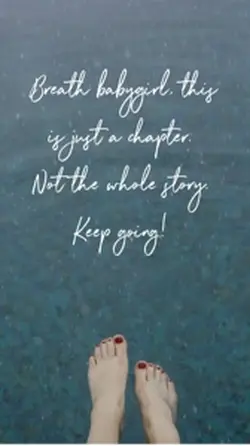 Breath babygirl, this
is just a chapter.
Not the whole story.
Keep going!